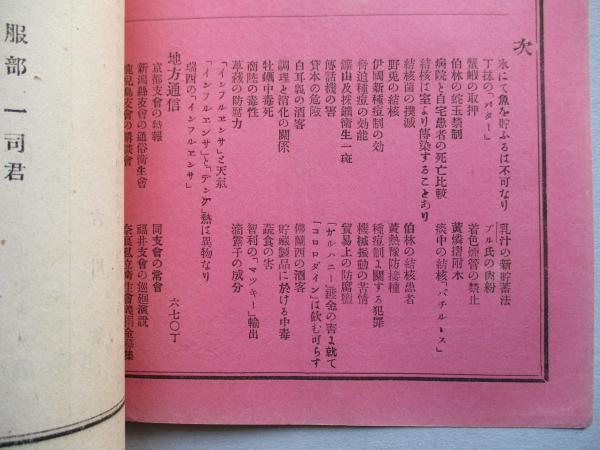 次
氷にて魚を貯ふるは不可なり
丁抹の「バター」
蟹蝦の取押
伯林の蛇玉禁制
病院と自宅患者の死亡比較
結核は室より傳染することあり
結核菌の撲滅
野兎の結核
伊國新種痘制の効
脅迫種痘の効能
鑛山及採鑛衛生一斑
傳話機の害
貸本の危險
白耳義の酒客
調理と消化の關係
牡蠣中毒死
商陸の毒性
草莪の防腐力
「インフルエンサ」と天氣
「インフルエンサ」と「デング」熱は異物なり
瑞西の「インフルエンサ」
乳汁の新貯蓄法
ブル氏の肉粉
着色煙管の禁止
黃燐摺附木
痰中の結核「バチルース」
伯林の結核患者
黃熱豫防接種
種痘制に關する犯罪
機械振動の苦情
貿易上の防腐鹽
「ガルハニー」鍍金の害に就て
「コロロダイン」は飮む可らず
佛蘭西の酒客
貯藏製品に於ける中毒
蔬食の害
智利の「マツキー」輸出
滴露子の成分
地方通信
六七〇丁
京都支會の特報
新潟縣支會の通俗衛生會
鹿兒島支會の講談會
同支會の常會
福井支會の巡廻演説
奈良私立衛生會義捐金募集
服部一司君